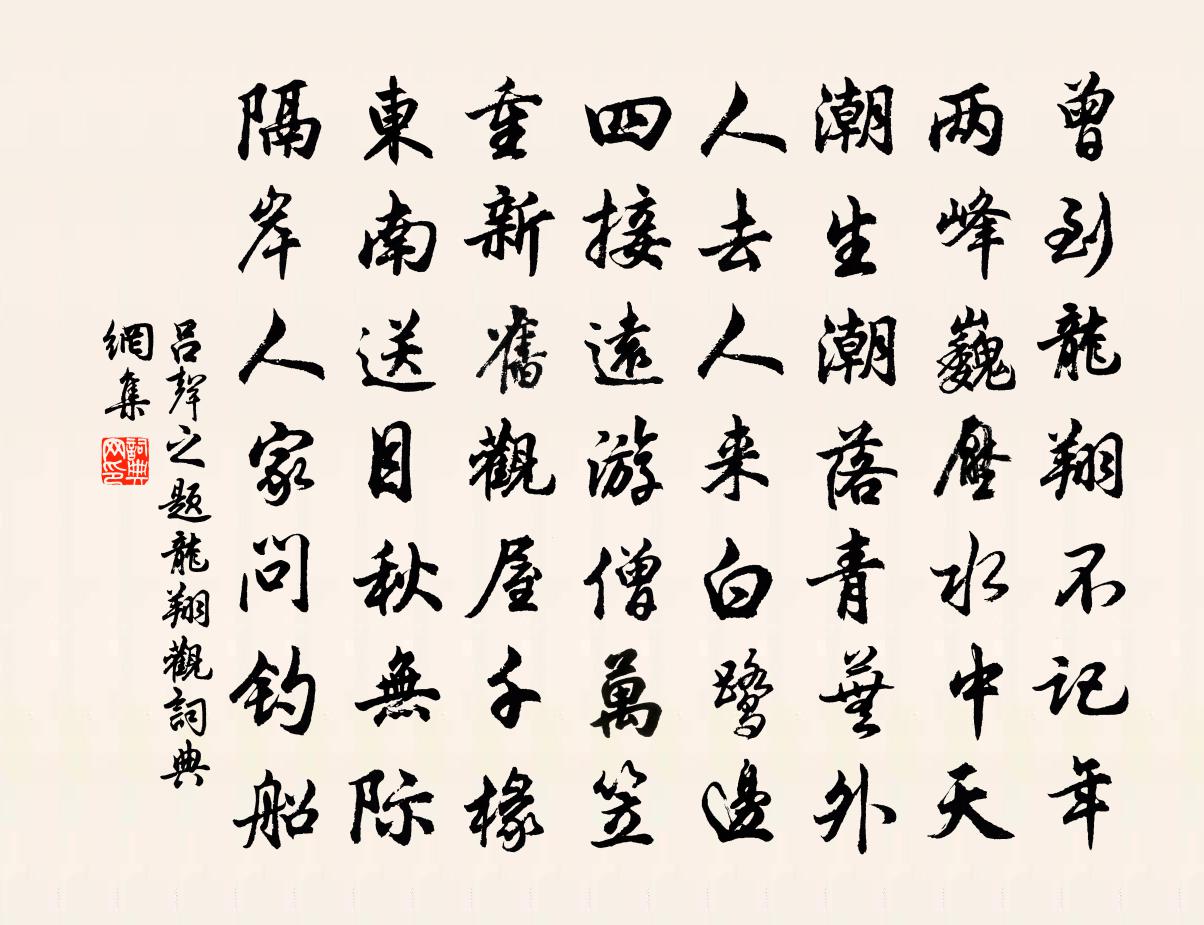 曾到龍翔不记年
两峰巍壓水中天
潮生潮落青蕪外
人去人来白鹭邊
四接遠游僧萬笠
重新舊觀屋千椽
東南送目秋無际
隔岸人家问钓船
吕聲之题龍翔觀詞典
網集
詞典
网印